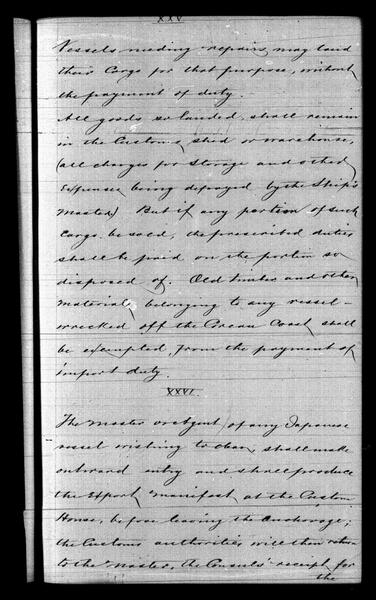 XXV
Vessels needing repairs, may land
their Cargo for that purpose, without
the payment of duty.
All goods so landed, shall remain
in the Customs shed or warehouse,
(all charges for storage and other
Expenses being defrayed by the Ship's
Master) But if any portion of such
Cargo be sold, the prescribed duties
shall be paid on the portion so
disposed of. Old timber and other
material, belonging to any vessel
wrecked off the Corean Coast, shall
be exempted, from the payment of
import duty.
XXVI
The Master or Agent, of any Japanese
vessel wishing to clear, shall make
outward entry and shall produce
the Export Manifest, at the Custom
House, before leaving the anchorage;
the Customs authorities will then return
to the Master, the Consul's receipt for
the